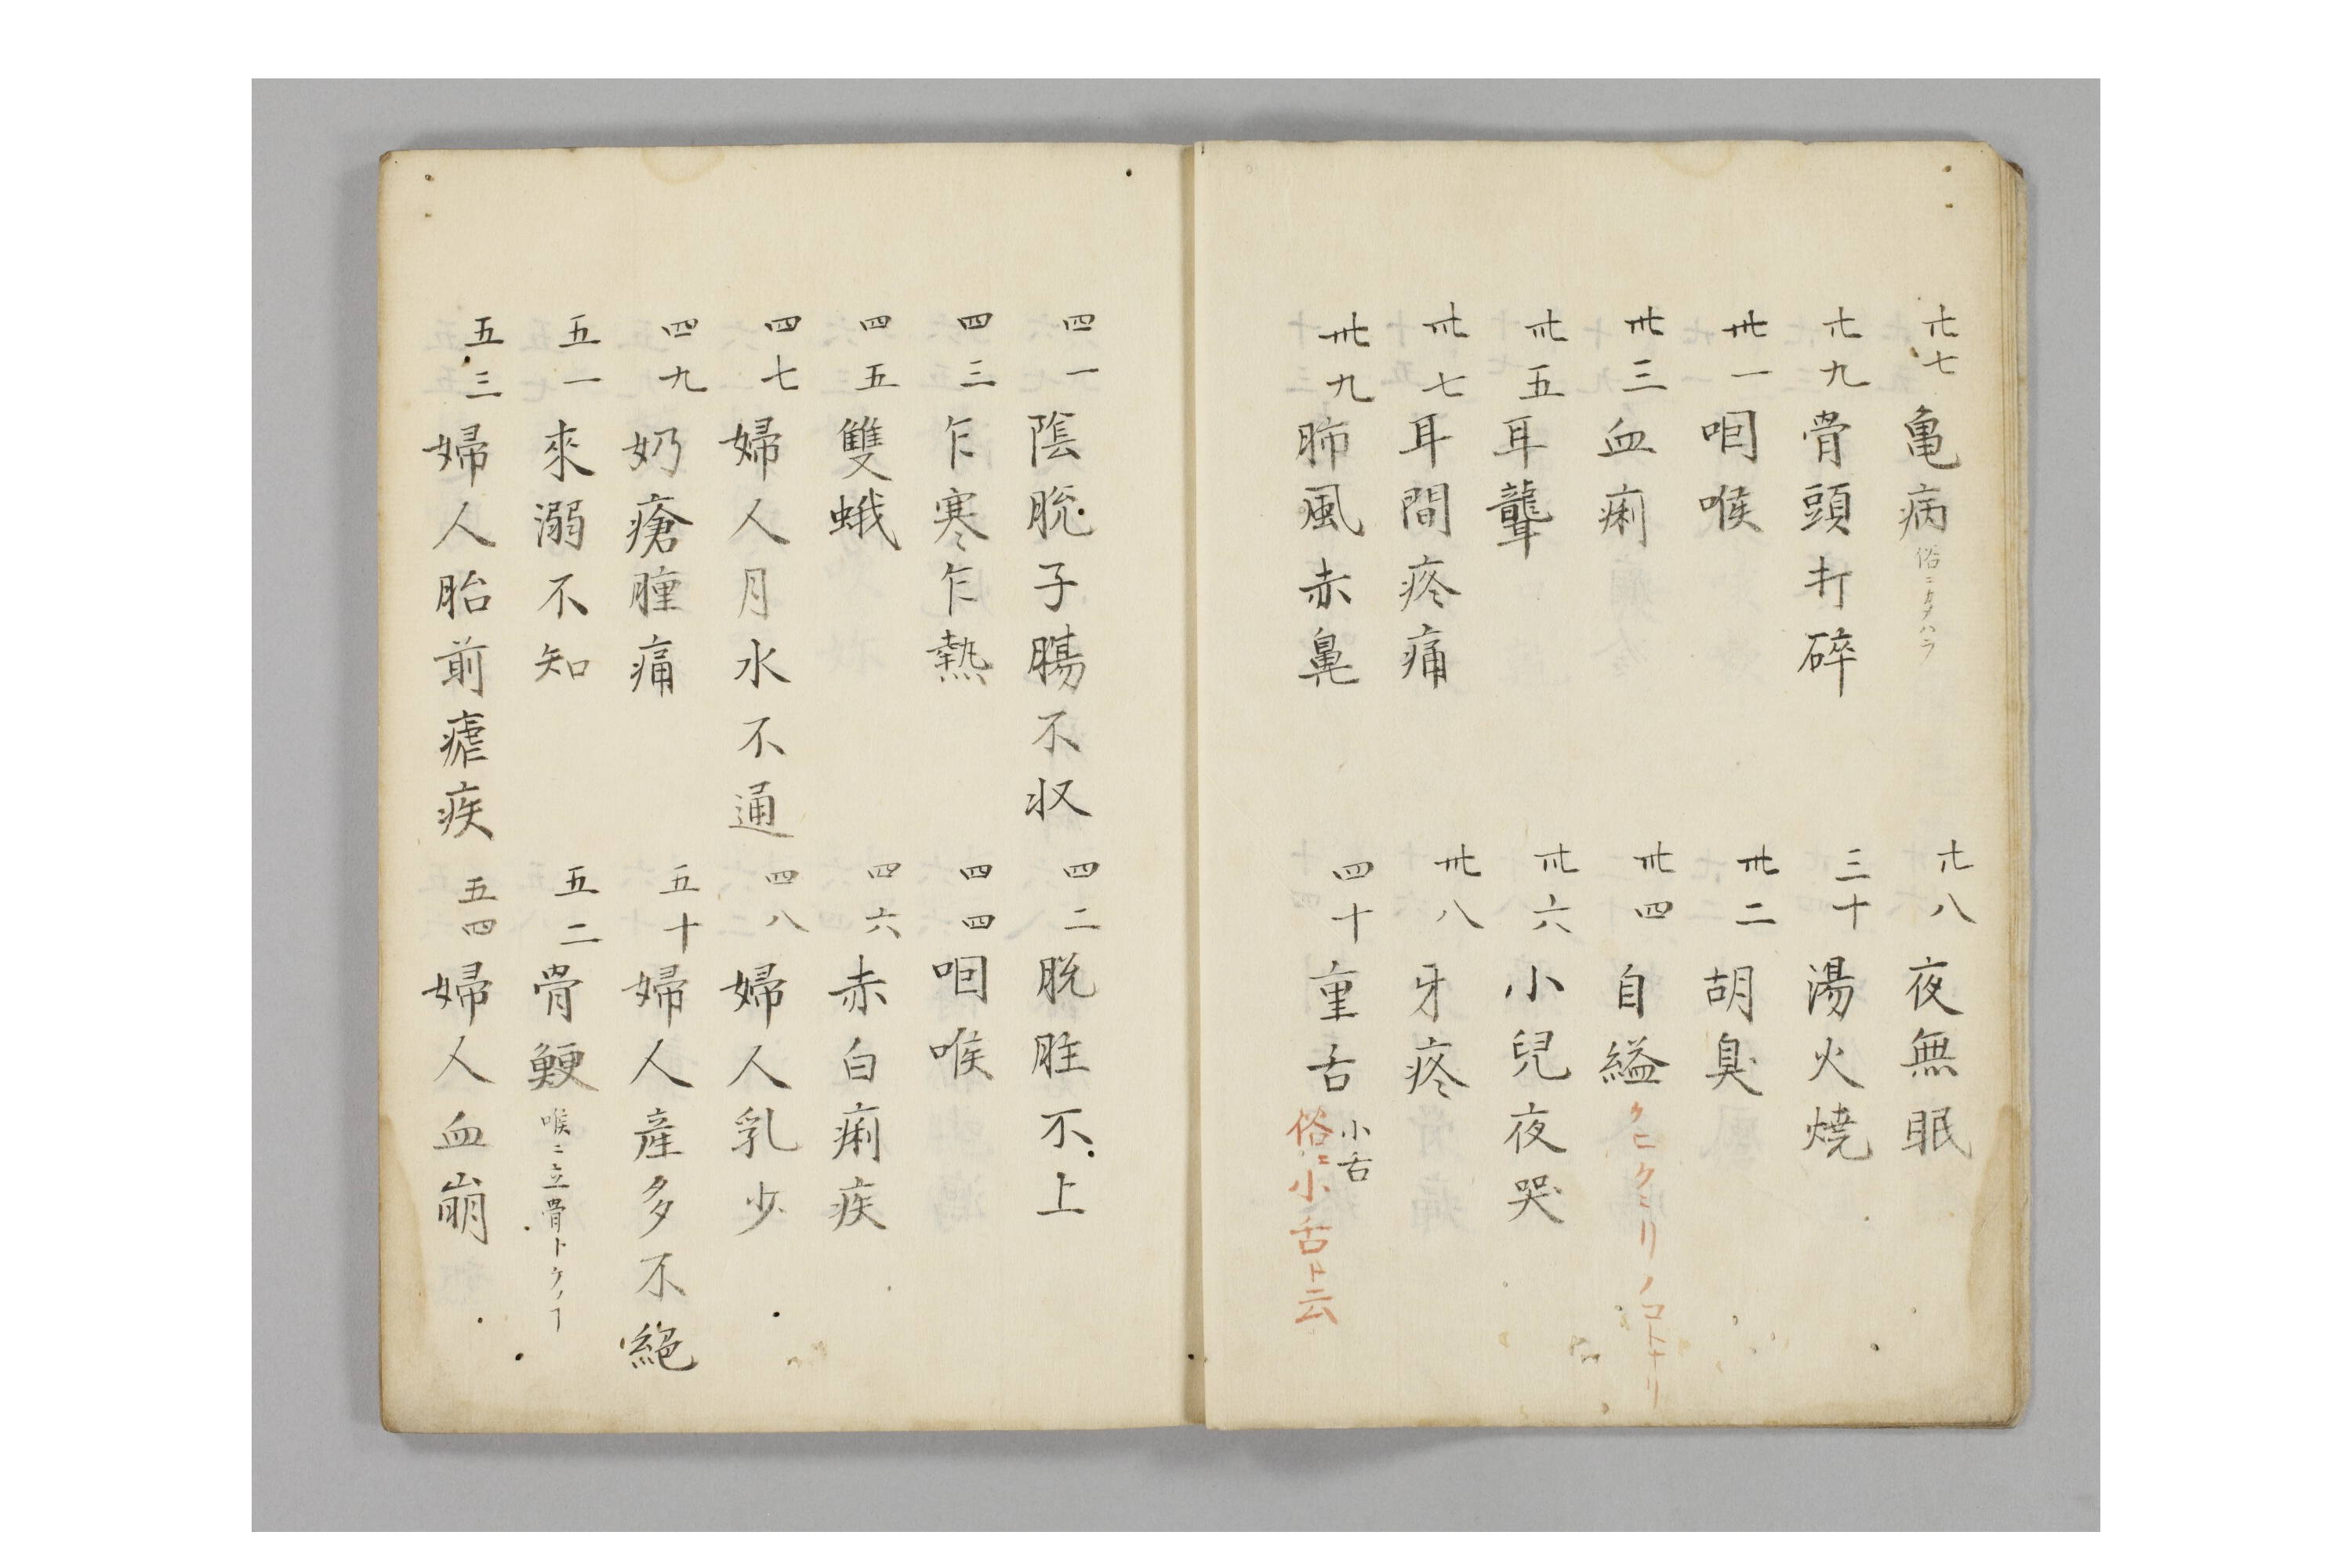 廿七 亀病 俗ニカタハラ
廿八 夜無眠
廿九 骨頭打碎
三十 湯火燒
卅一 咽喉
卅二 胡臭
卅三 血痢
卅四 自縊 クヒクヽリノコトナリ
卅五 耳聾
卅六 小兒夜哭
卅七 耳間疼痛
卅八 牙疼
卅九 肺風赤鼻
四十 重舌 小舌
俗ニ小舌ト云
四一 陰脱子腸不収
四二 脱肛不上
四三 乍寒乍熱
四四 咽喉
四五 雙蛾
四六 赤白痢疾
四七 婦人月水不通
四八 婦人乳少
四九 奶瘡腫痛
五十 婦人産多不絕
五一 來溺不知
五二 骨鯁 喉ニ立骨トケノヿ
五三 婦人胎前瘧疾
五四 婦人血崩